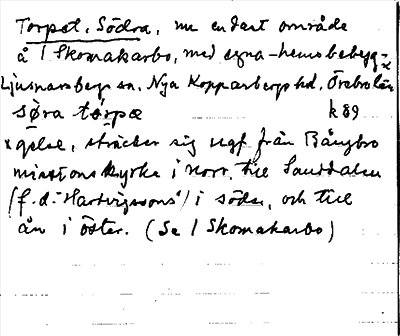 Torpet, Södra, nu endast område
å 1 Skomakarbo, med egna-hemsbebygg-x
Ljusnarsbergs sn. Nya Kopparbergs hd. Örebro län
søra tórpæ k 89
x gelse, sträcker sig ungf. från Bångbro
missionskyrka i norr, till Sanddalen
(f.d. "Hartvigssons") i söder, och till
ån i öster. (Se 1 Skomakarbo)